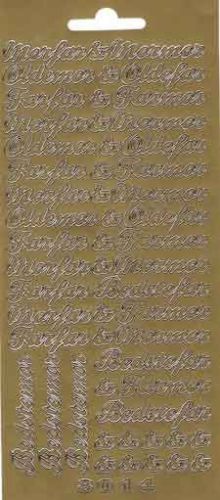 Morfar & Mormor
Oldemor & Oldefar
Farfar & Farmor
Morfar & Mormor
Oldemor & Oldefar
Farfar & Farmor
Morfar & Mormor
Oldemor & Oldefar
Farfar & Farmor
Morfar & Mormor
Farfar & Bedstefar
Morfar & Farmor
Farfar & Mormor
Bedstefar
& Farmor
Bedstefar
& & & & &
& & & & &
Bedstemor
Bedstemor
Bedstemor